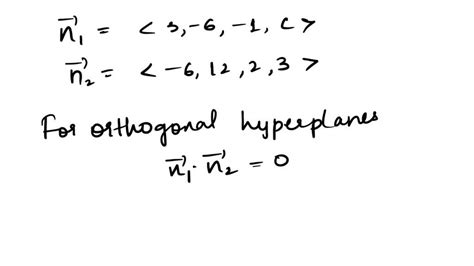 n⃗₁ = < 3, -6, -1, c >
n⃗₂ = < -6, 12, 2, 3 >
For orthogonal hyperplanes
n⃗₁ · n⃗₂ = 0